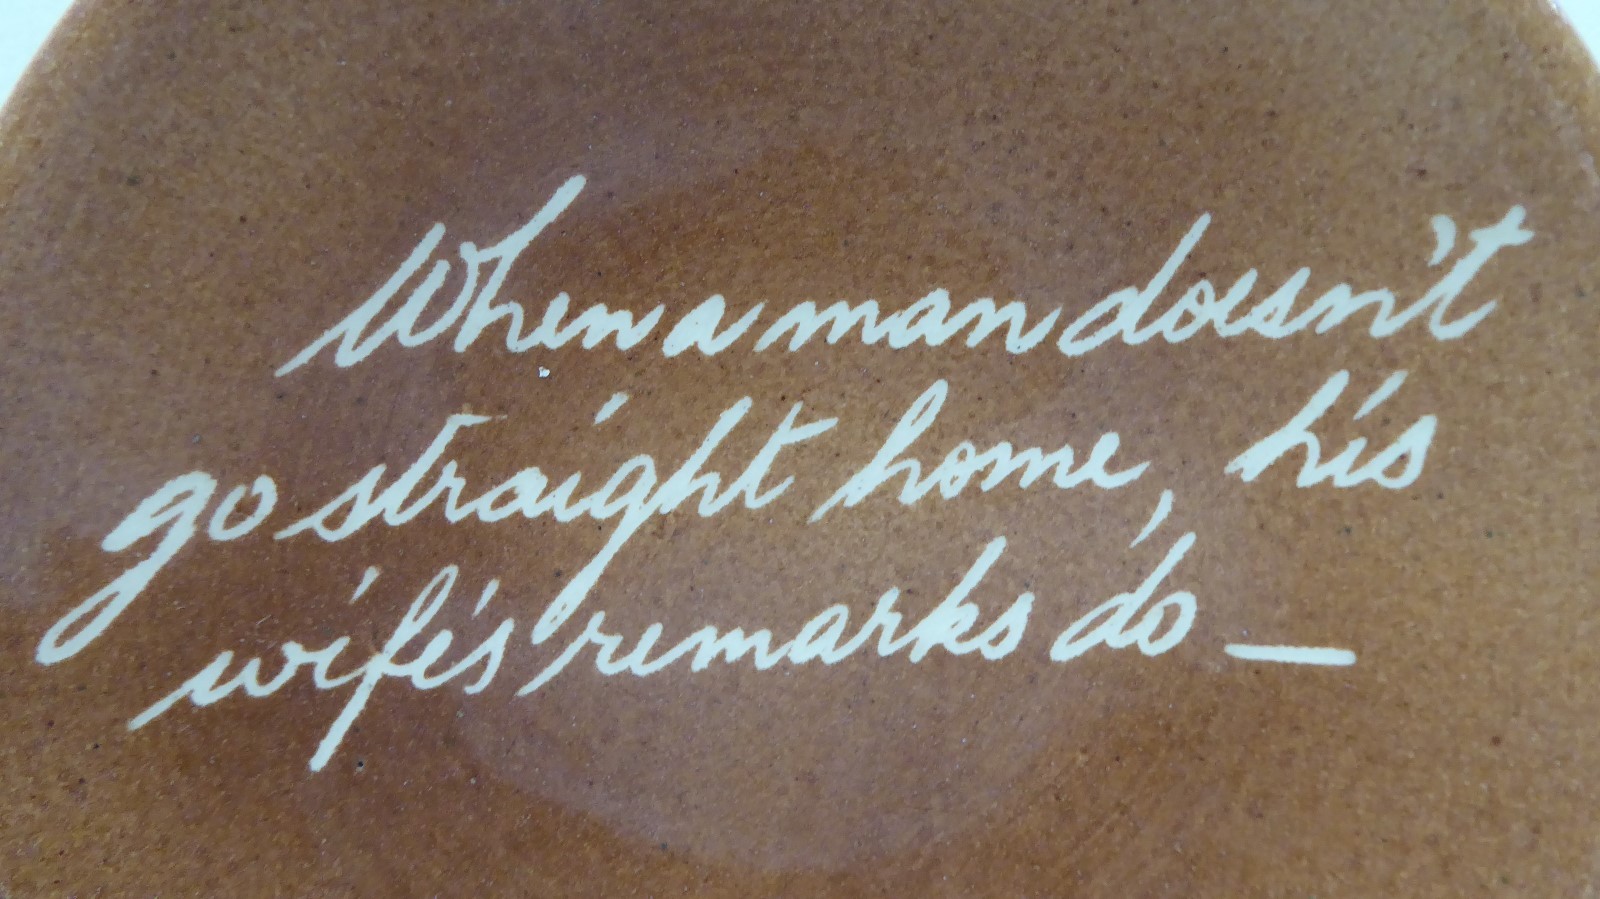 When a man doesn't
go straight home, his
wife's remarks do —